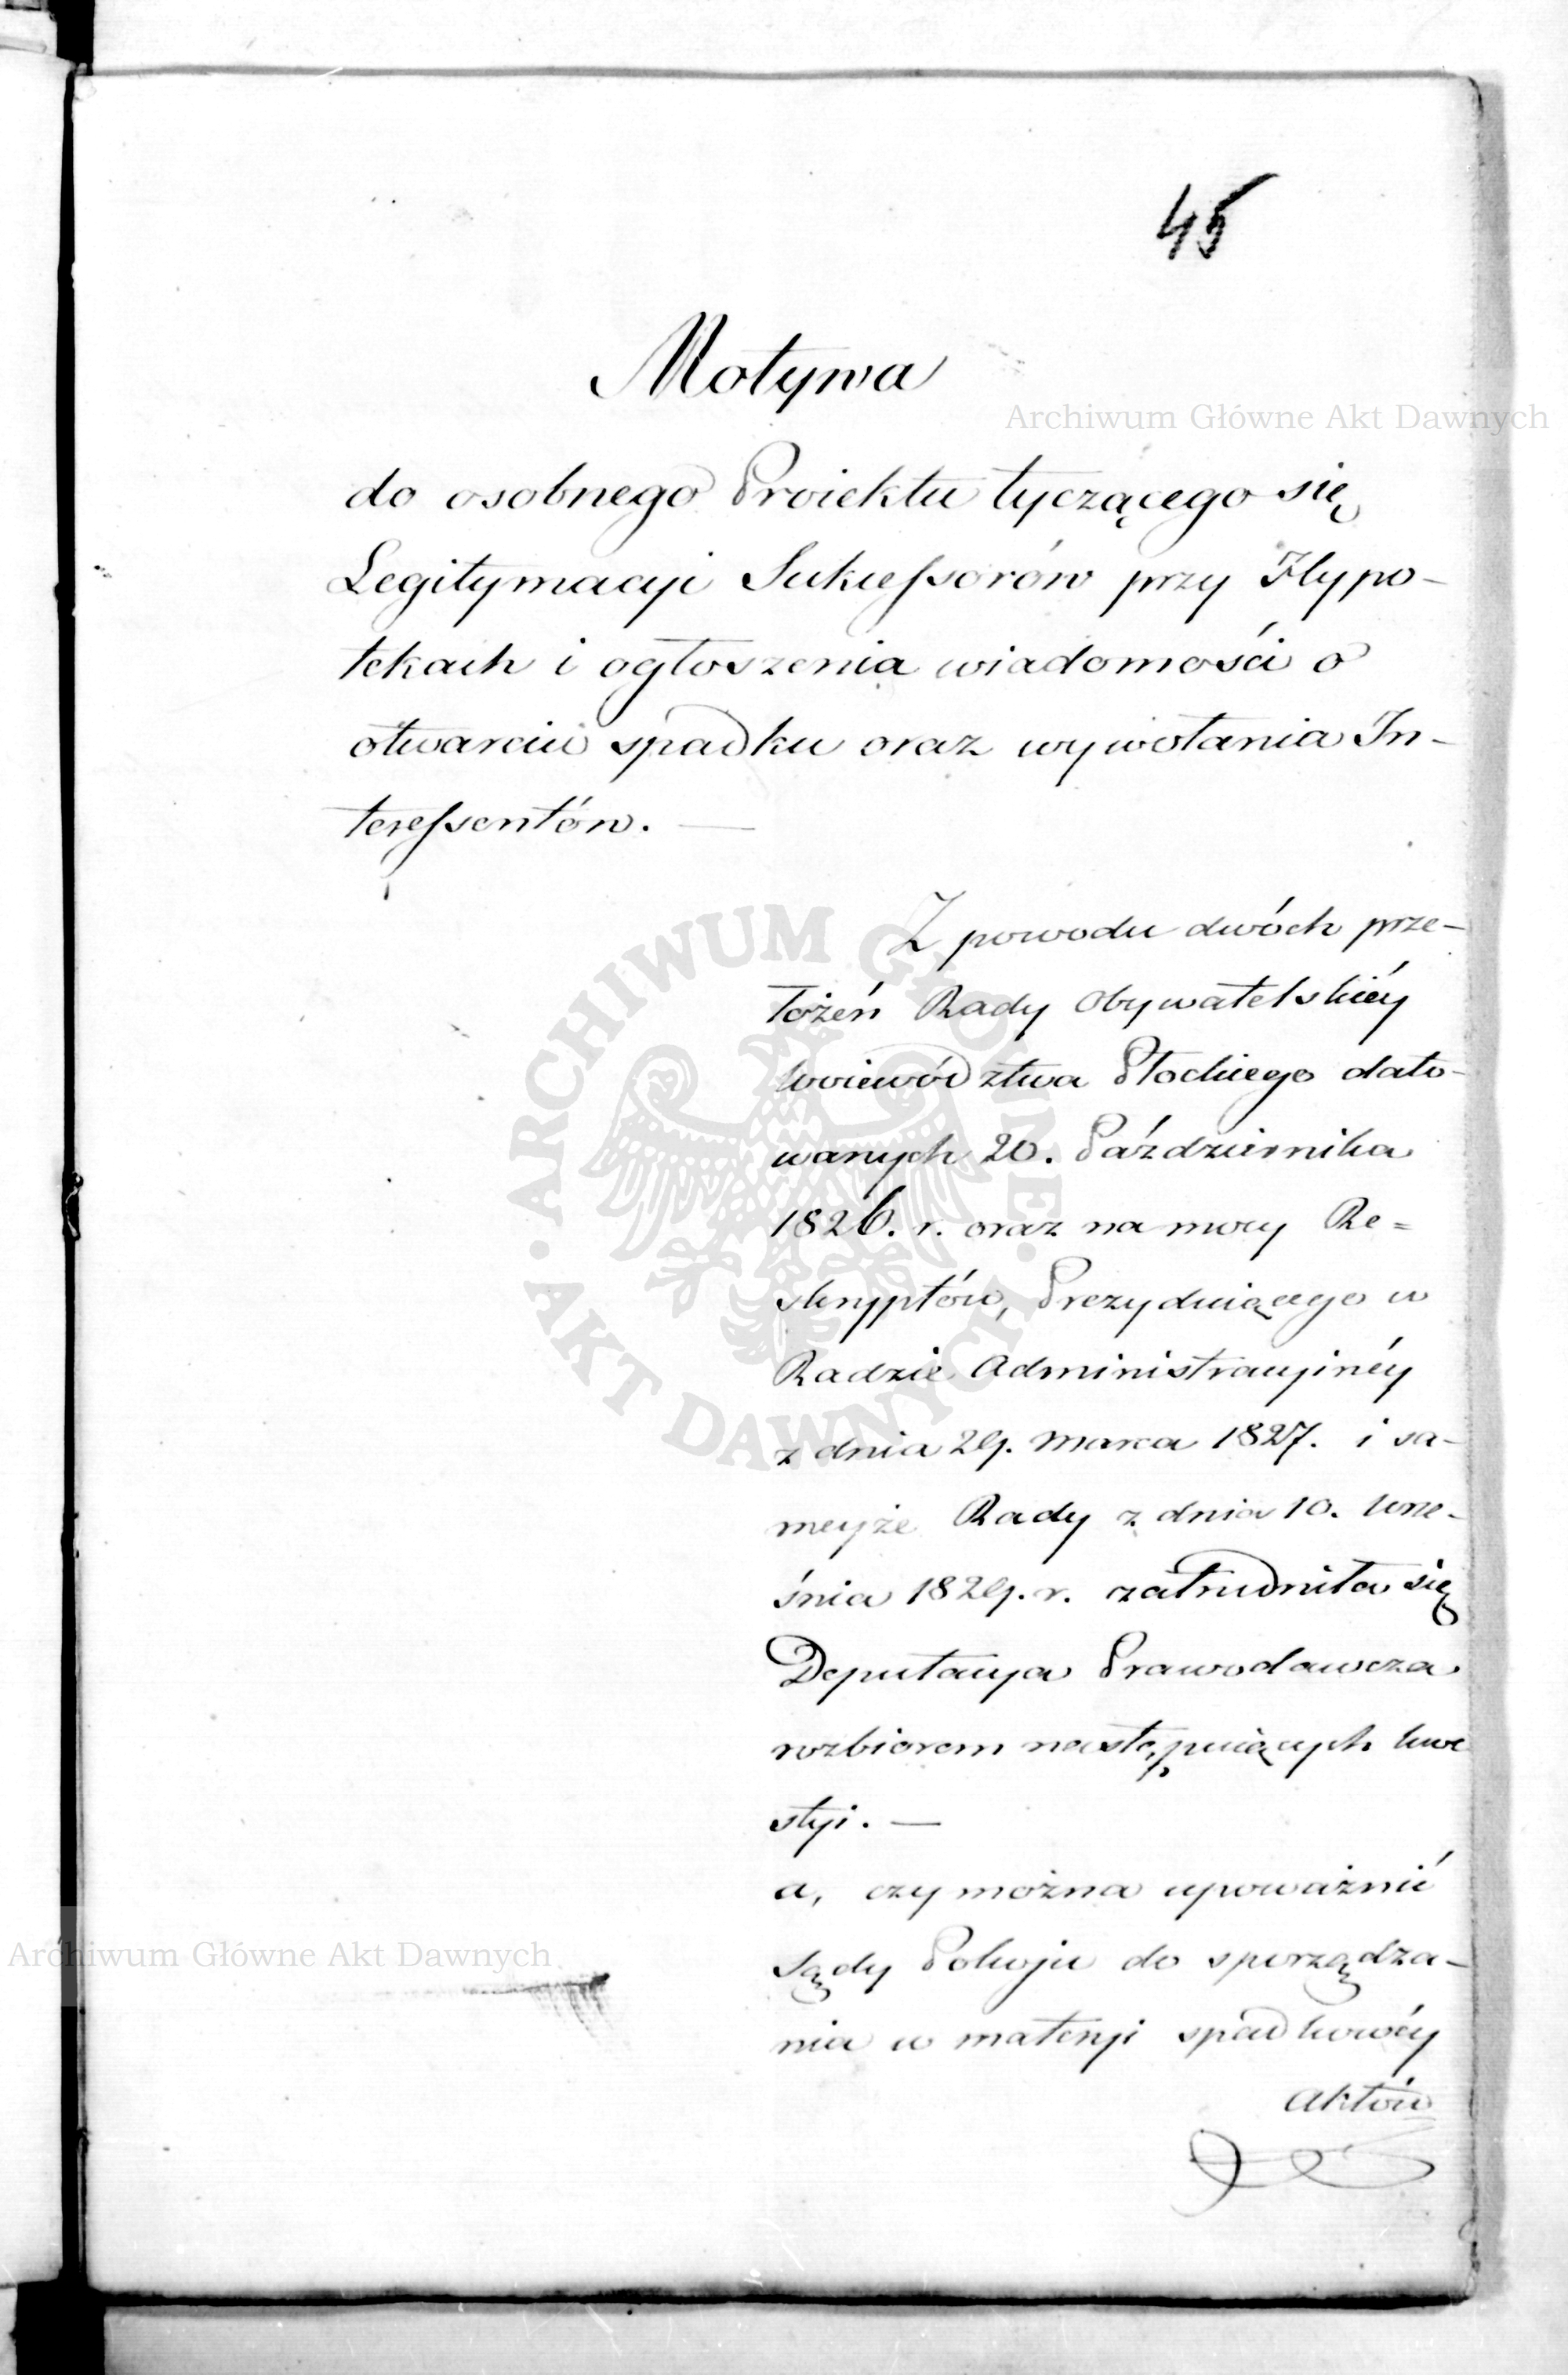 45
Motywa
Archiwum Główne Akt Dawnych
do osobnego Proiektu tyczącego się
Legitymacyi Sukcessorów przy Hypo-
tekach i ogłoszenia wiadomości o
otwarciu spadku oraz wywołania In-
teressentów. —
Z powodu dwóch prze-
łożéń Rady Obywatelskiéy
Woiewództwa Płockiego dato-
wanych 20. Października
1826. r. oraz na mocy Re=
skryptów, Prezyduiącego w
Radzie Administracyinéy
z dnia 29. Marca 1827. i sa-
meyże Rady z dnia 10. Wrze-
śnia 1829. r. zatrudniła się
Deputacya Prawodawcza
rozbiorem następuiących kwe
styi. —
a, czy można upoważnić
Sądy Pokoju do sporządza-
nia w materyi spadkowéy
Aktów
ARCHIWUM GŁÓWNE · AKT DAWNYCH ·
Archiwum Główne Akt Dawnych